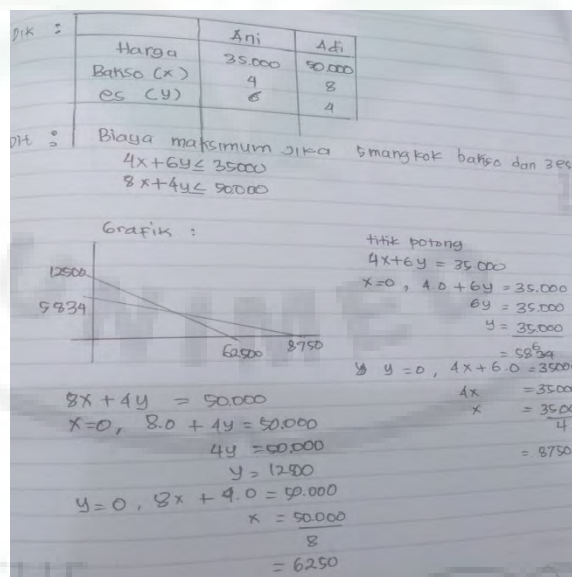 Dik :
Ani Adi
Harga 35.000 50.000
Bakso (x) 4 8
es (y) 6 4
Dit : Biaya maksimum jika 5 mangkok bakso dan 3 es
4x+6y ≤ 35000
8x+4y ≤ 50.000
Grafik :
12500
5834
62500 8750
titik potong
4x+6y = 35.000
x=0, 4.0 + 6y = 35.000
6y = 35.000
y = 35.000
6
= 5834
y y=0, 4x+6.0 = 3500
4x = 3500
x = 3500
4
= 8750
8x + 4y = 50.000
x=0, 8.0 + 4y = 50.000
4y = 50.000
y = 12500
y=0, 8x + 4.0 = 50.000
x = 50.000
8
= 6250